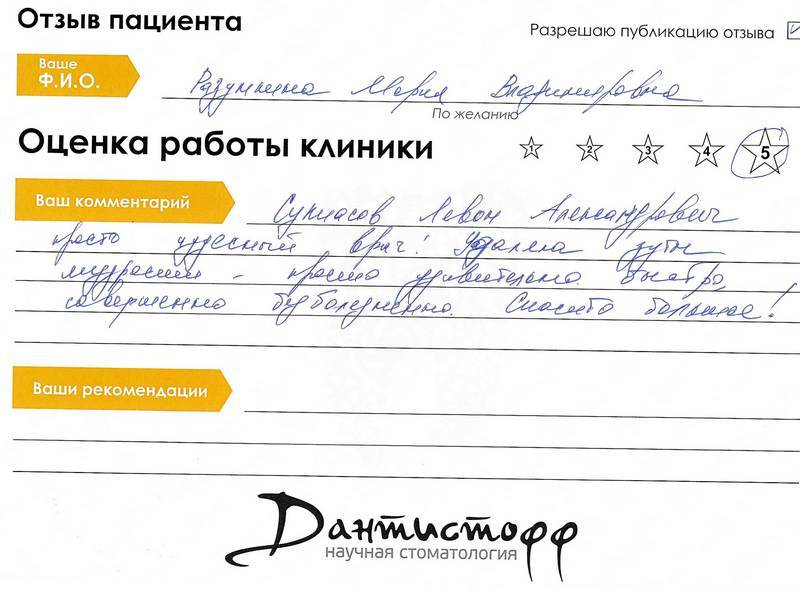 Отзыв пациента
Разрешаю публикацию отзыва
Ваше
Ф.И.О.
Разумнина Мария Владимировна
По желанию
Оценка работы клиники
1 2 3 4 5
Ваш комментарий
Сукиасов Левон Александрович
просто чудесный врач! Удалила зубы
мудрости - просто удивительно быстро,
совершенно безболезненно. Спасибо большое!
Ваши рекомендации
Дантистофф
научная стоматология